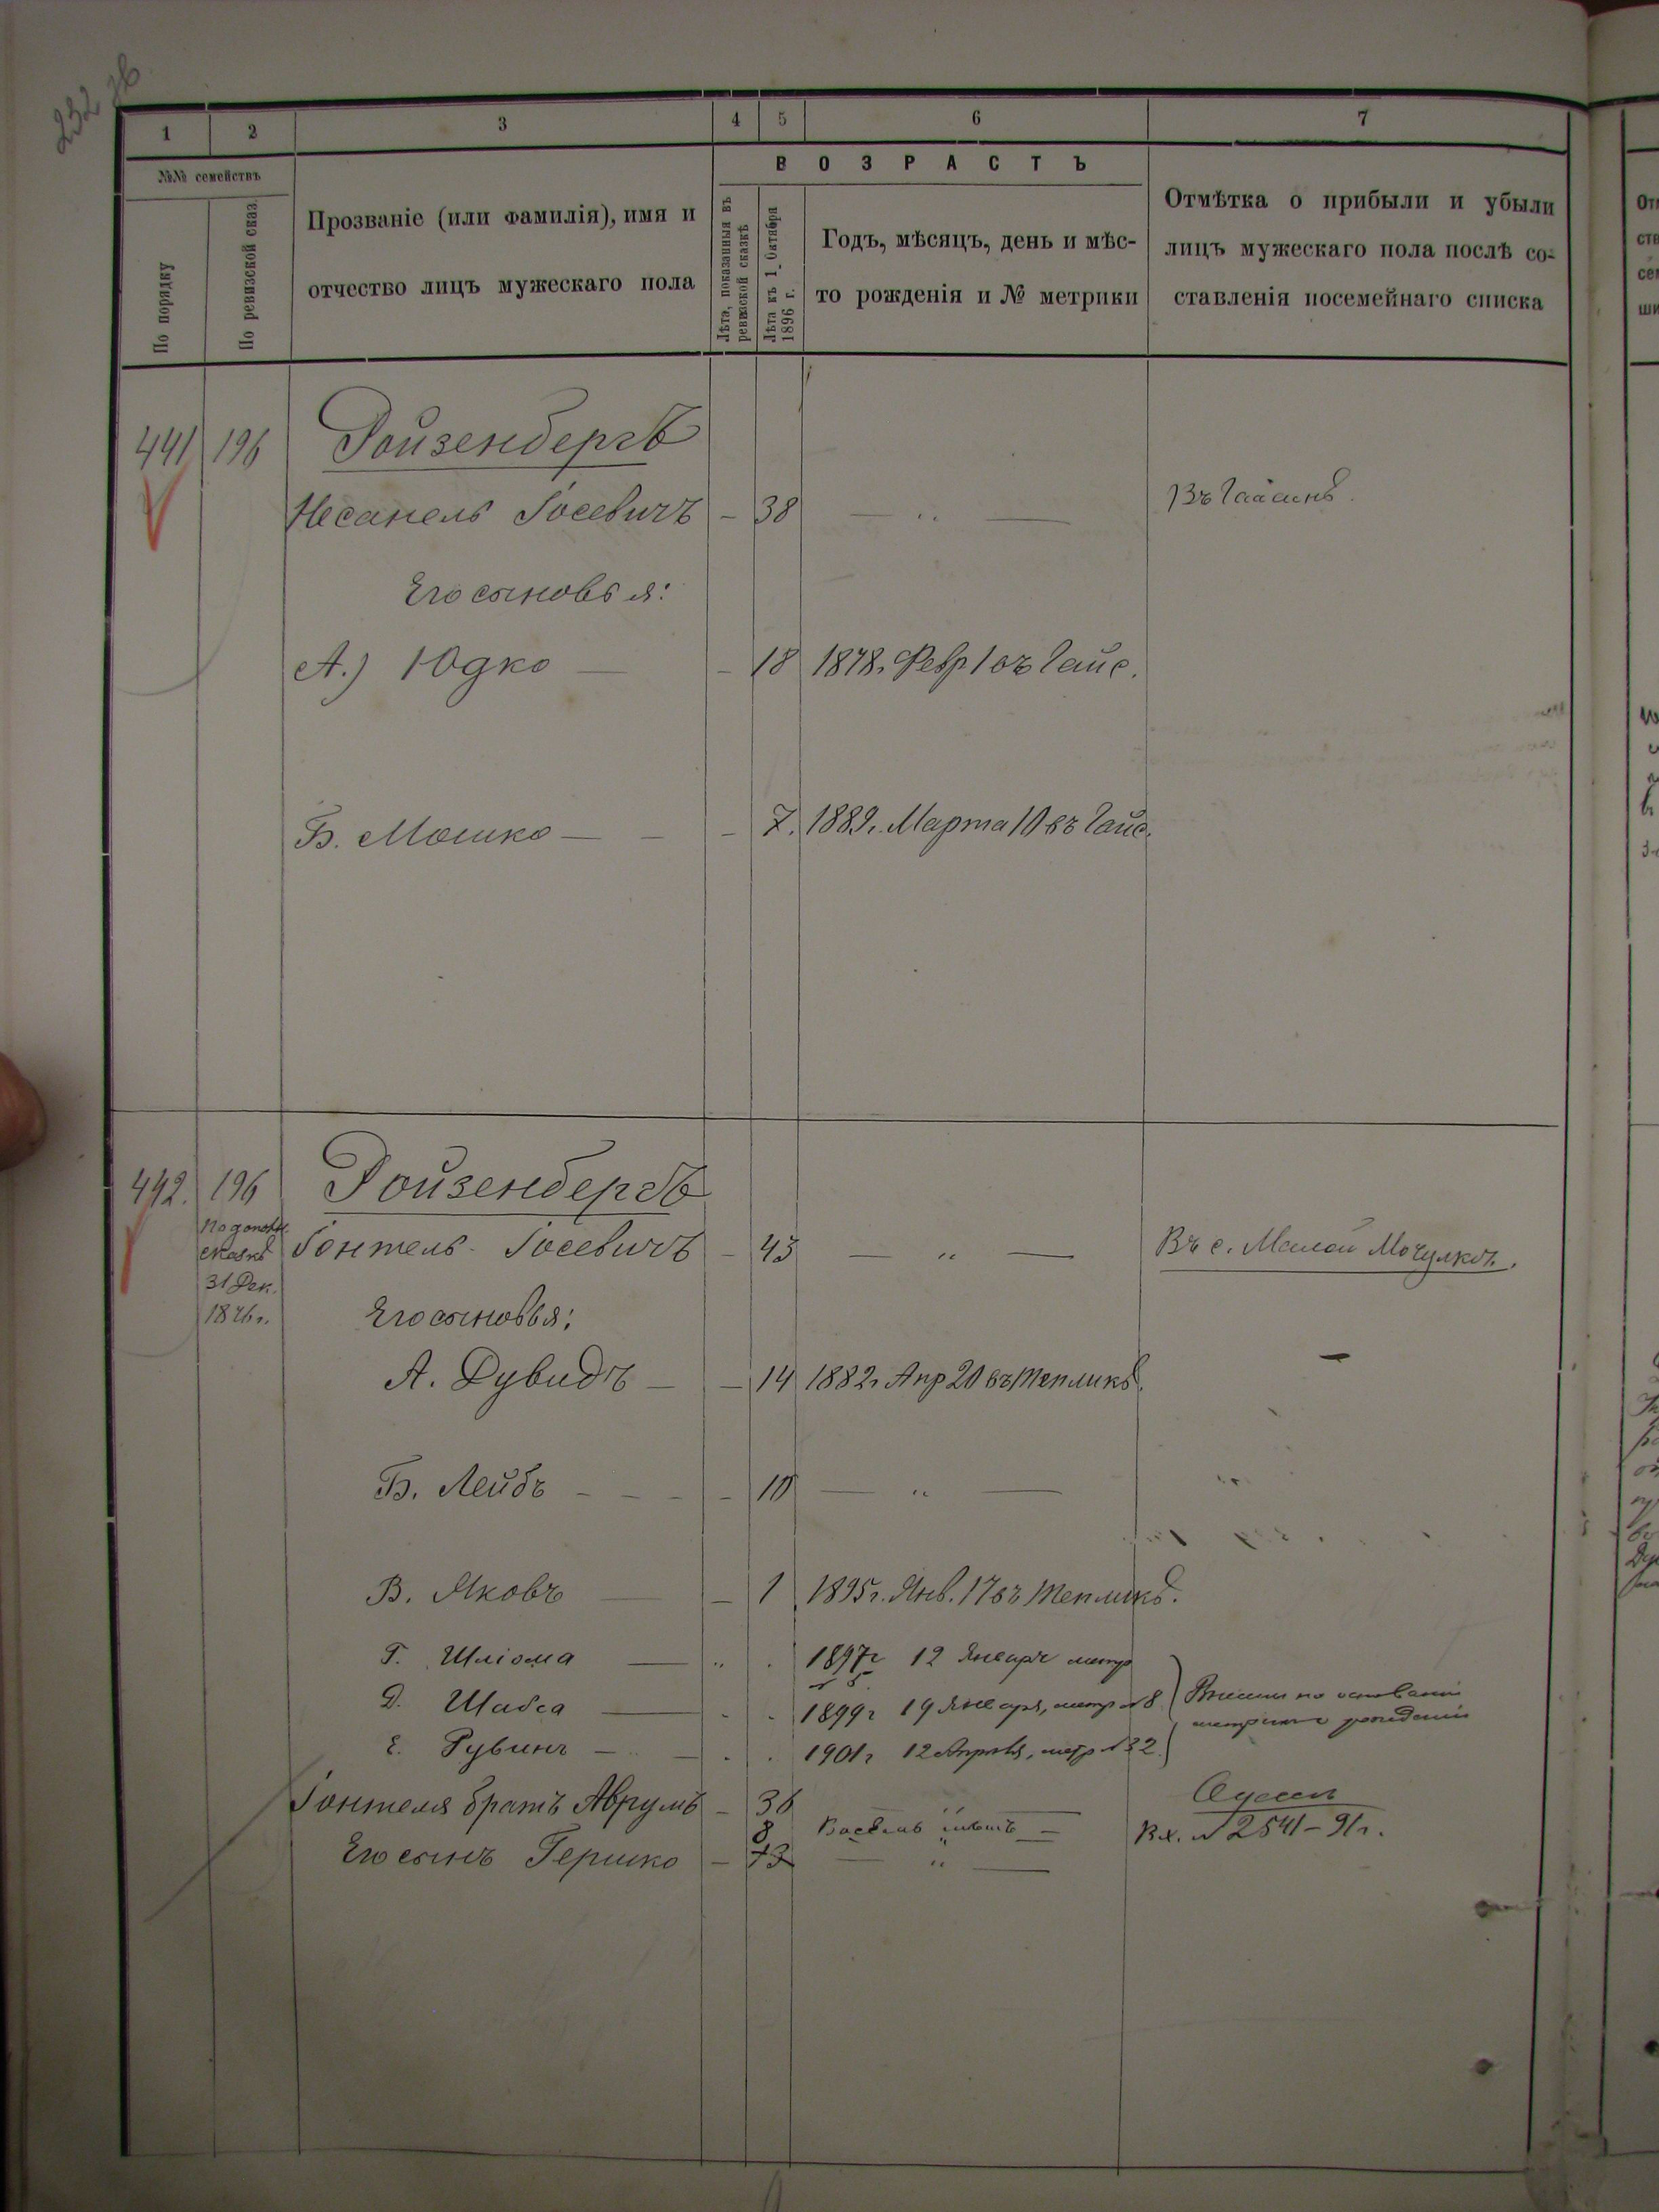 232 об
1 2 3 4 5 6 7
№№ семействъ
По порядку
По ревизской сказ.
Прозваніе (или фамилія), имя и
отчество лицъ мужескаго пола
ВОЗРАСТЪ
Лѣта, показанныя въ
ревизской сказкѣ
Лѣта къ 1 Октября
1896 г.
Годъ, мѣсяцъ, день и мѣс-
то рожденія и № метрики
Отмѣтка о прибыли и убыли
лицъ мужескаго пола послѣ со-
ставленія посемейнаго списка
441 196 Ройзенбергъ
Несанель Іосевичъ - 38 — " — Въ Гайсинѣ.
Его сыновья:
А.) Юдко — - 18 1878г. Февр 1 въ Гайс.
Б. Мошко — - - 7. 1889г. Марта 10 въ Гайс.
442. 196 Ройзенбергъ
По дополн.
сказкѣ Гонтель Іосевичъ - 43 — " — Въ с. Малой Мочулкѣ.
31 Дек.
1876г. Его сыновья:
А. Дувидъ — - 14 1882г Апр 20 въ Тепликѣ.
Б. Лейбъ - - - - 10 — " —
В. Яковъ — - 1 1895г. Янв. 17 въ Тепликѣ.
Г. Шліома — " . 1897г 12 Января метр
№ 5.
Д. Шабса — - - 1899г 19 Января, метр №8
Е. Рувинъ — . . 1901г 12 Апрѣля, метр №32
Гонтеля братъ Аврумъ - 36
8
Его сынъ Гершко - 13 — " —
Вх. № 2541-91г.